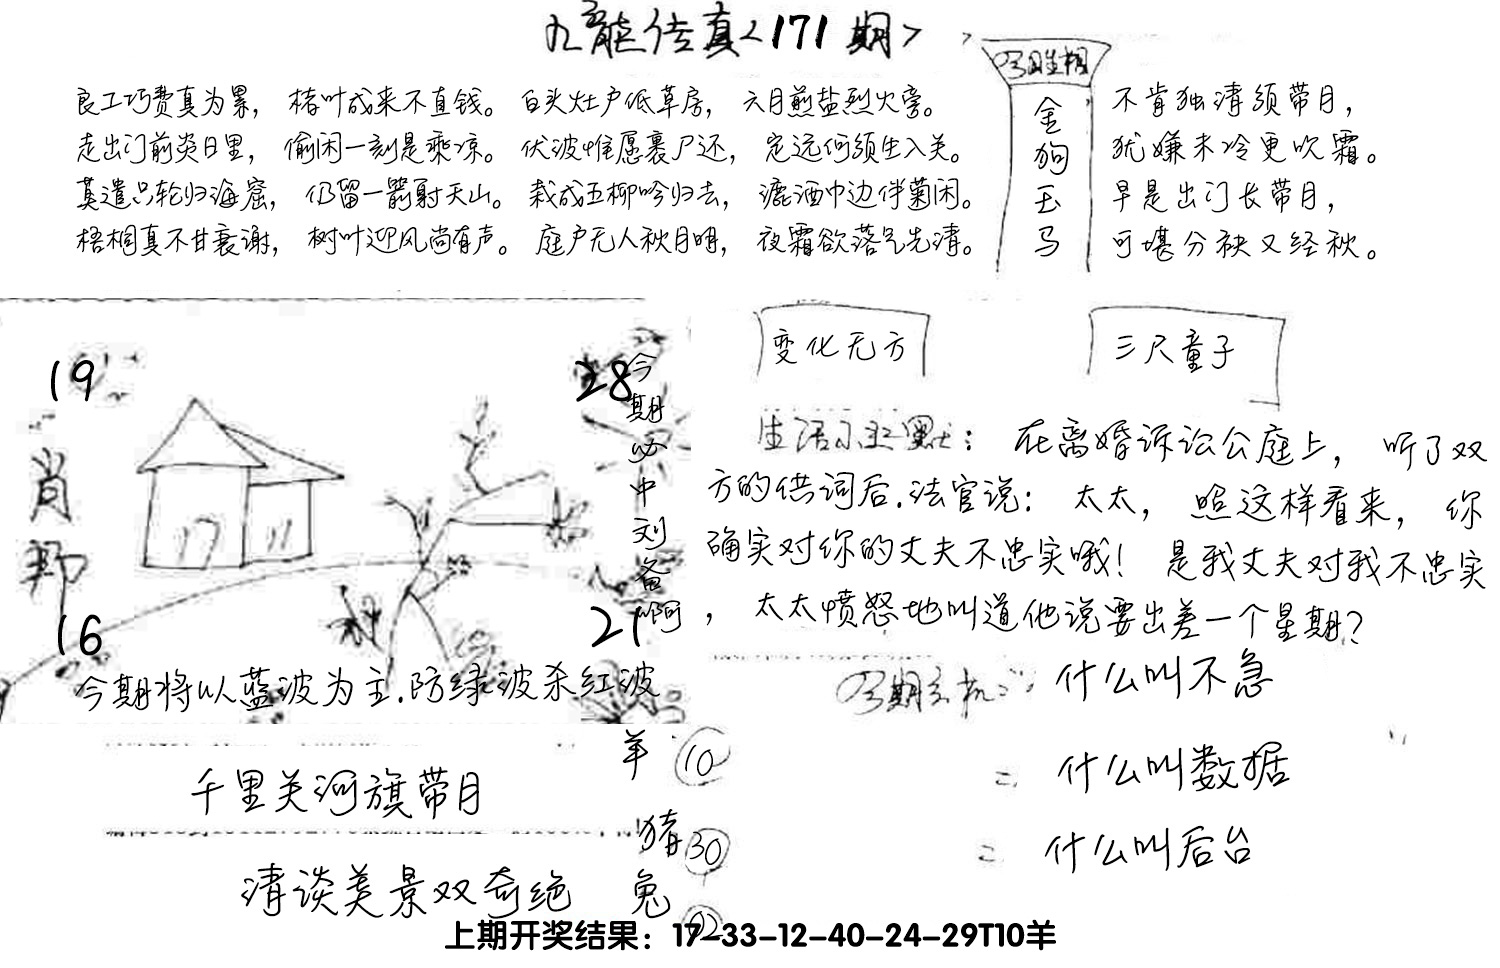 九龙传真<171期>
良工巧费真为累，楮叶成来不直钱。白头灶户低草房，六月煎盐烈火旁。
走出门前炎日里，偷闲一刻是乘凉。伏波惟愿裹尸还，定远何须生入关。
莫遣只轮归海窟，仍留一箭射天山。栽成五柳吟归去，漉酒巾边伴菊闲。
梧桐真不甘衰谢，树叶迎风尚有声。庭户无人秋月明，夜霜欲落气先清。
金狗玉马
不肯独清须带月，
犹嫌未冷更吹霜。
早是出门长带月，
可堪分袂又经秋。
19
28
肖
16
21
今期必中刘备啊
今期将以蓝波为主.防绿波杀红波
变化无方
三尺童子
生活小幽默：在离婚诉讼公庭上，听了双
方的供词后.法官说：太太，照这样看来，你
确实对你的丈夫不忠实哦！是我丈夫对我不忠实
，太太愤怒地叫道他说要出差一个星期？
什么叫不急
什么叫数据
什么叫后台
千里关河旗带月
清谈美景双奇绝
羊 10
猪 30
兔
上期开奖结果：17-33-12-40-24-29T10羊